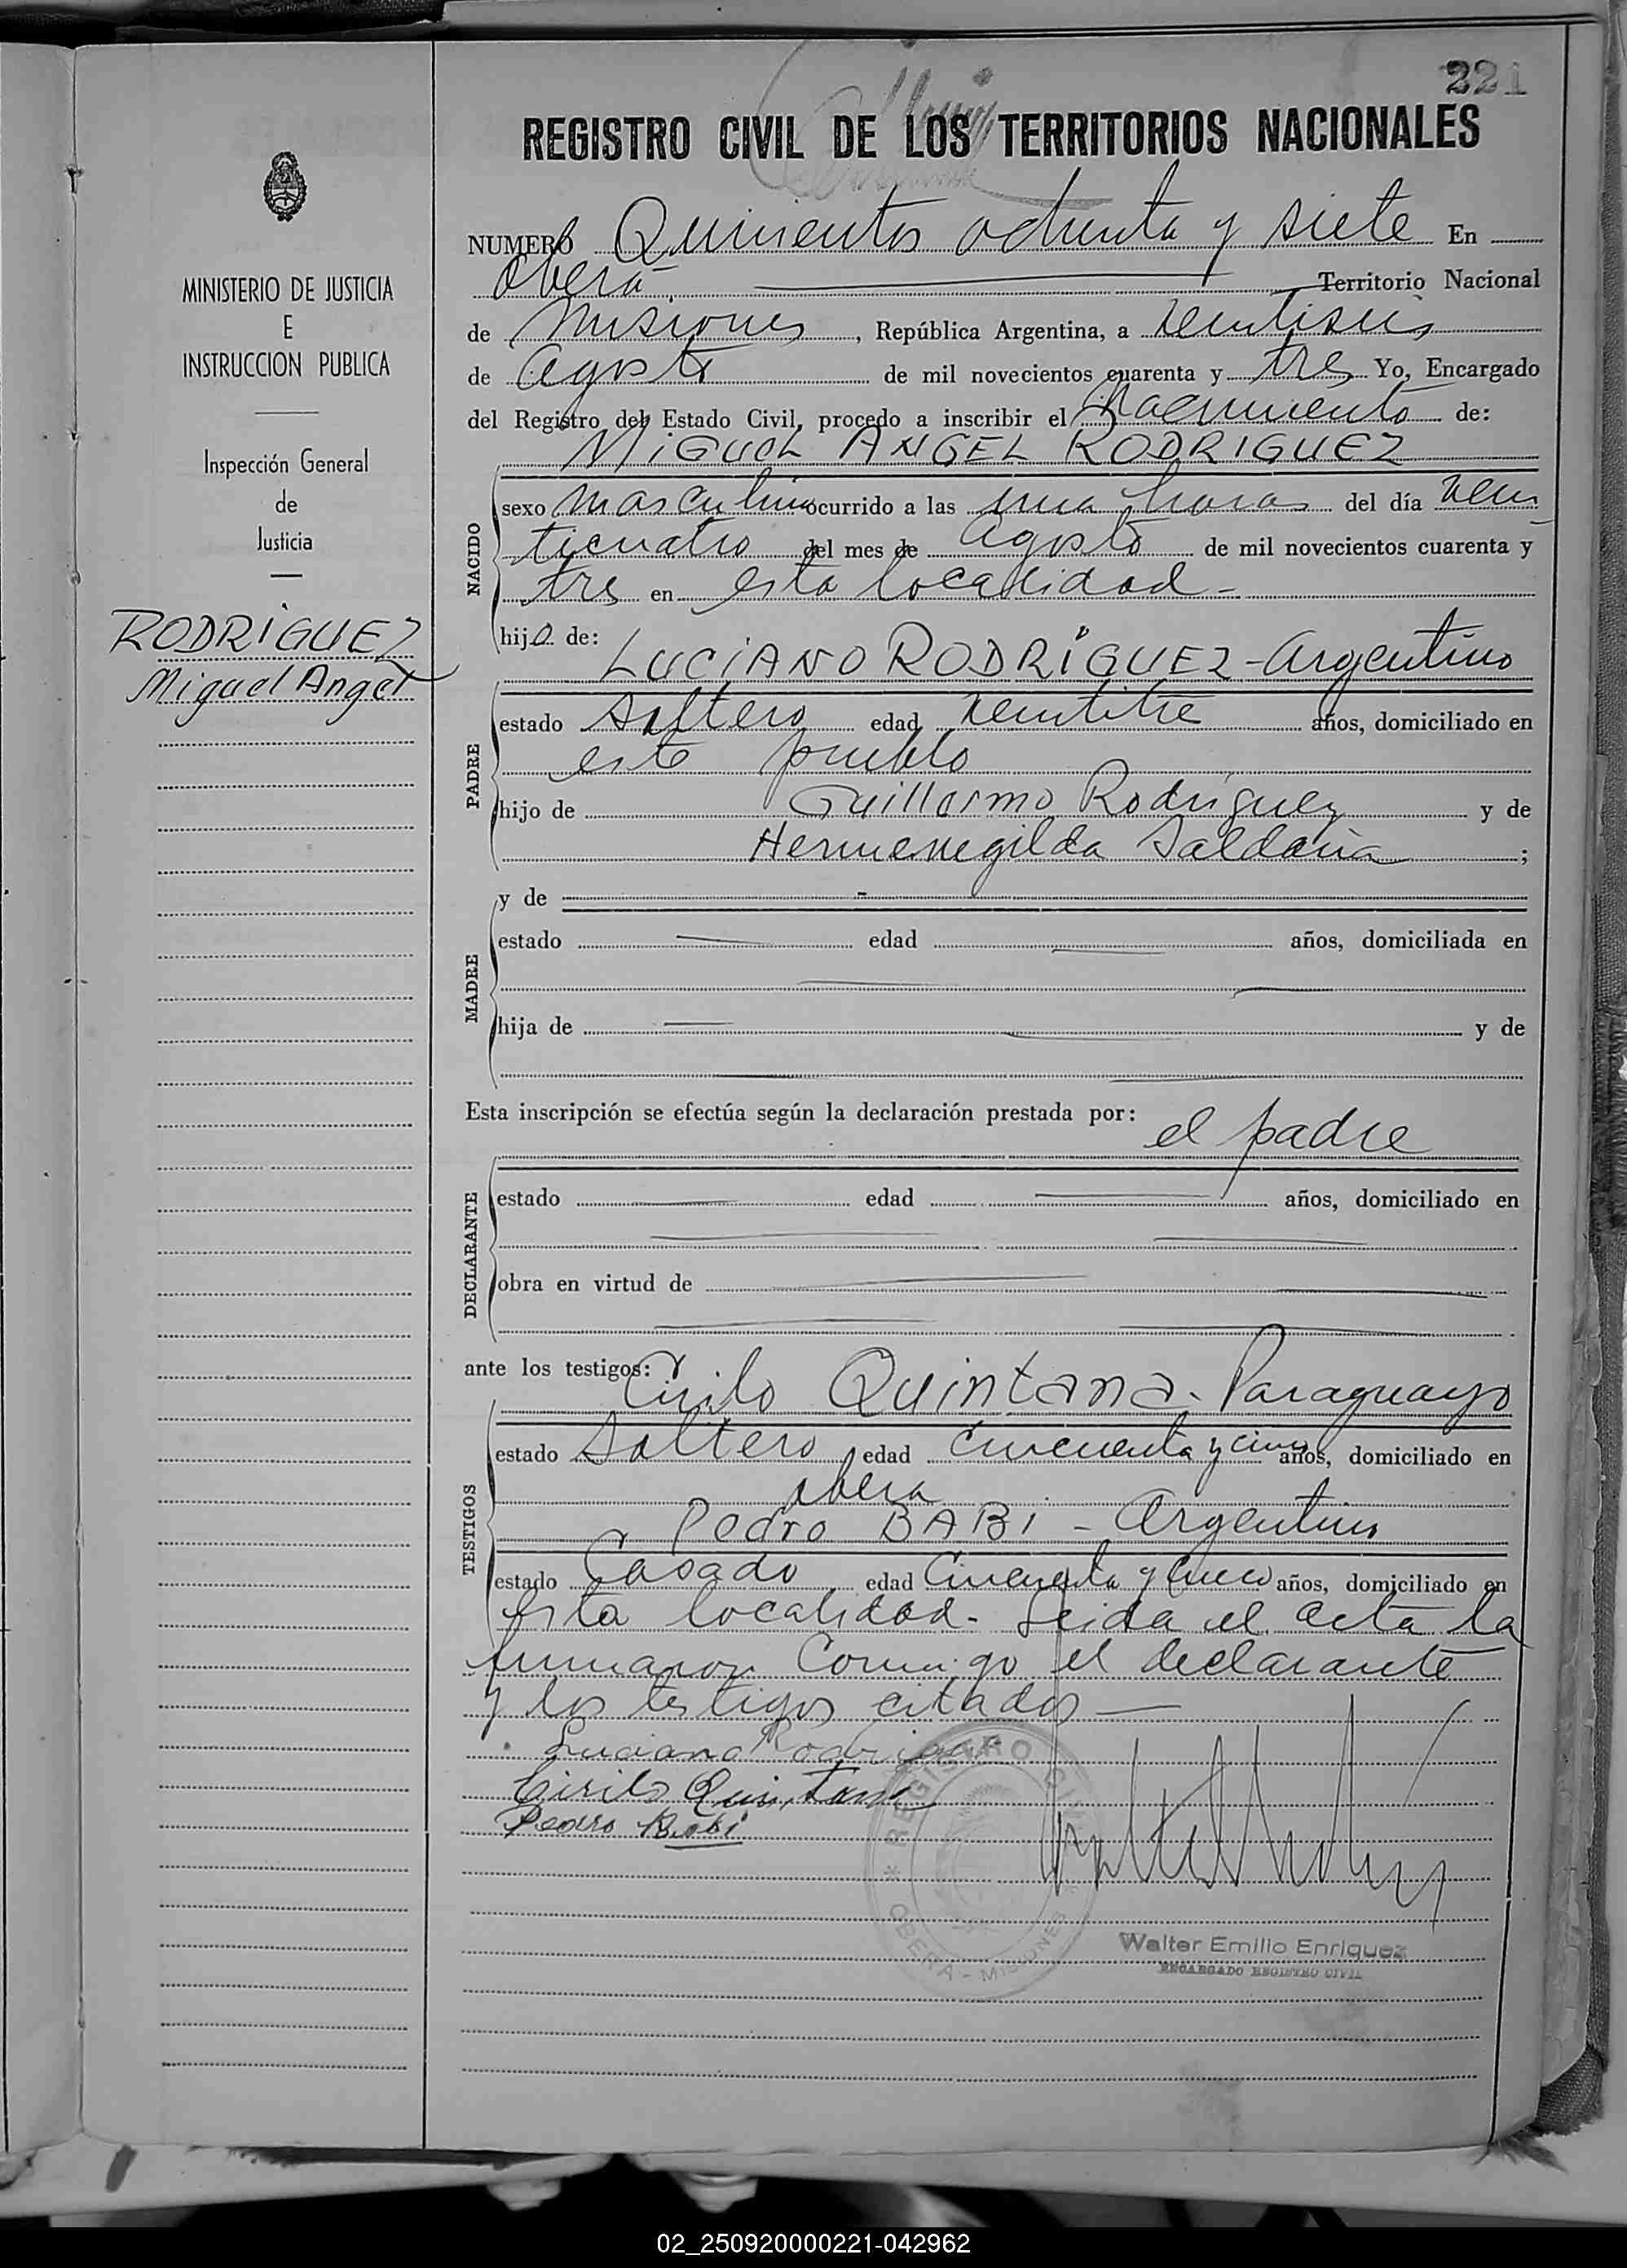 221
REGISTRO CIVIL DE LOS TERRITORIOS NACIONALES
MINISTERIO DE JUSTICIA
E
INSTRUCCION PUBLICA
Inspección General
de
Justicia
RODRIGUEZ
Miguel Angel
NUMERO Quinientos ochenta y siete En
Oberá Territorio Nacional
de Misiones, República Argentina, a veintiseis
de Agosto de mil novecientos cuarenta y tres Yo, Encargado
del Registro del Estado Civil, procedo a inscribir el Nacimiento de:
MIGUEL ANGEL RODRIGUEZ
NACIDO
sexo masculino ocurrido a las una horas del día vein
ticuatro del mes de Agosto de mil novecientos cuarenta y
tres en esta localidad-
hijo de:
LUCIANO RODRIGUEZ - Argentino
PADRE
estado Soltero edad veintitre años, domiciliado en
este pueblo
hijo de Guillermo Rodriguez y de
Hermenegilda Saldaña ;
MADRE
y de
estado edad años, domiciliada en
hija de y de
Esta inscripción se efectúa según la declaración prestada por:
el padre
DECLARANTE
estado edad años, domiciliado en
obra en virtud de
ante los testigos:
Cirilo Quintana - Paraguayo
TESTIGOS
estado Soltero edad cincuenta y cinco años, domiciliado en
Obera
Pedro BABI - Argentino
estado Casado edad Cincuenta y cinco años, domiciliado en
esta localidad - Leida el acta la
firmaron Conmigo el declarante
y los testigos citados
Luciano Rodriguez
Cirilo Quintana
Pedro Babi
REGISTRO CIVIL
OBERA - MISIONES
Walter Emilio Enriquez
ENCARGADO REGISTRO CIVIL
02_250920000221-042962